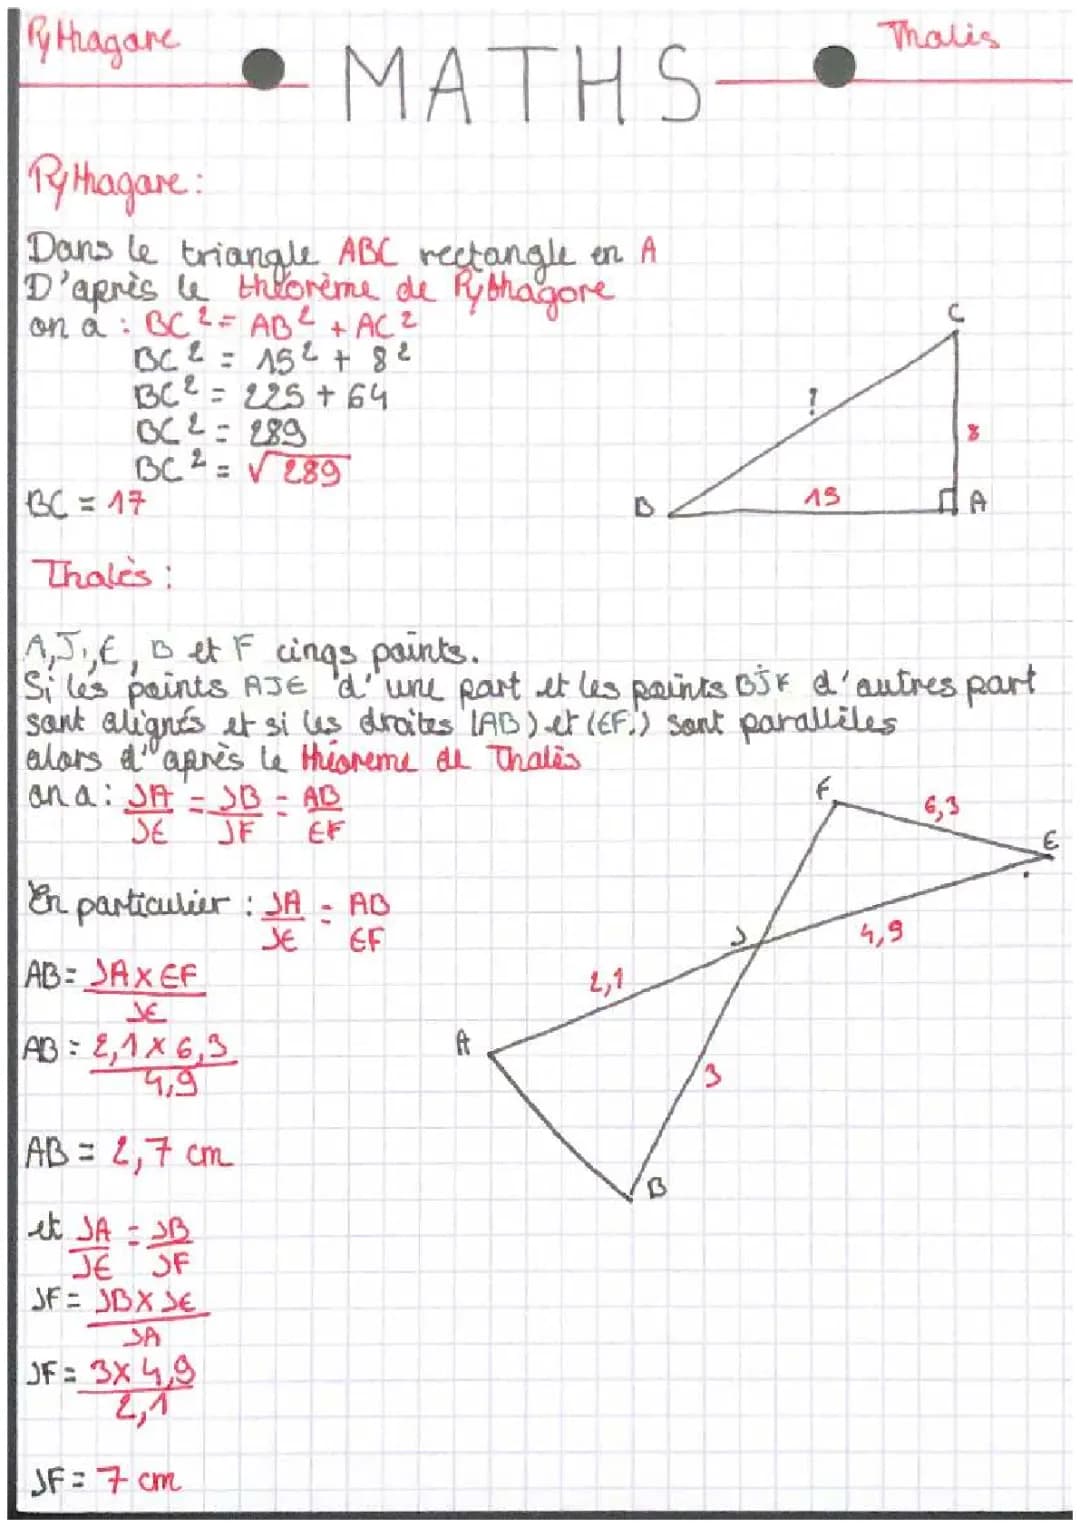 Pythagare
MATHS
Thalès
Pythagare :
Dans le triangle ABC rectangle en A
D'après le théorème de Pythagore
on a : BC² = AB² + AC²
BC² = 15² + 8²
BC² = 225 + 64
BC² = 289
BC² = √289
BC = 17
C
?
8
B
15
A
Thalès :
A, J, E, B et F cinqs points.
Si les points AJE d'une part et les points BJF d'autres part
sont alignés et si les droites (AB) et (EF) sont parallèles
alors d'après le théoreme de Thalès
on a : JA/JE = JB/JF = AB/EF
En particulier : JA/JE = AB/EF
AB = JA x EF / JE
AB = 2,1 x 6,3 / 4,9
AB = 2,7 cm
et JA/JE = JB/JF
JF = JB x JE / JA
JF = 3 x 4,9 / 2,1
JF = 7 cm
F
6,3
E
J
4,9
2,1
A
3
B